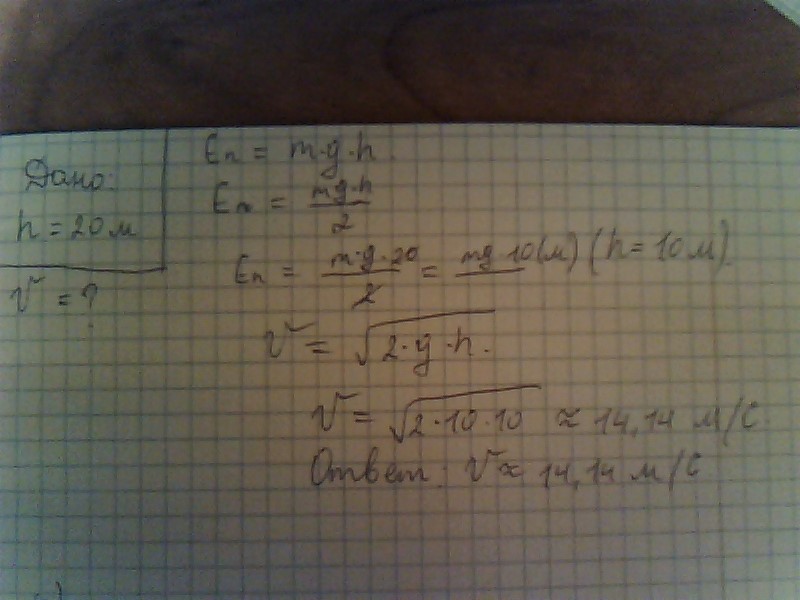 Дано:
h = 20 м
v = ?
Eп = m·g·h.
Eп = mg·h / 2
Eп = m·g·20 / 2 = mg·10(м) (h = 10м)
v = √2·g·h.
v = √2·10·10 ≈ 14,14 м/с.
Ответ: v ≈ 14,14 м/с